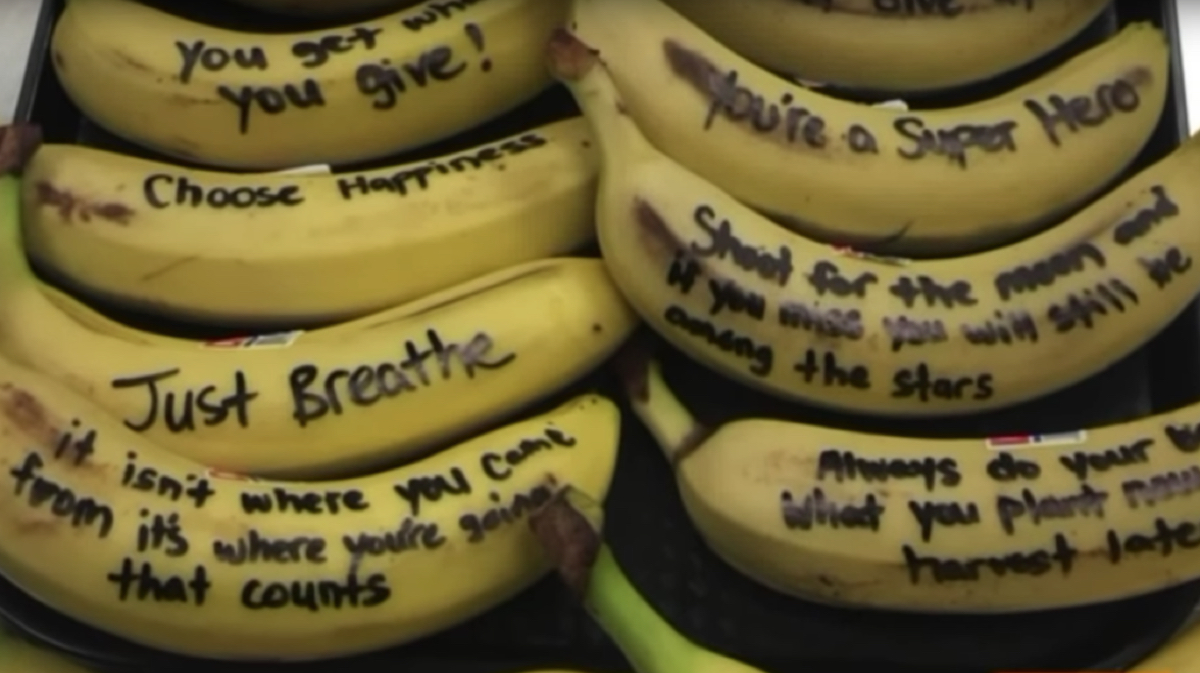 You get
you give!
Choose Happiness
Just Breathe
it isn't where you came
from it's where you're going
that counts
You're a Super Hero
Shoot for the moon and
if you miss you will still be
among the stars
Always do your
What you plant now
harvest late